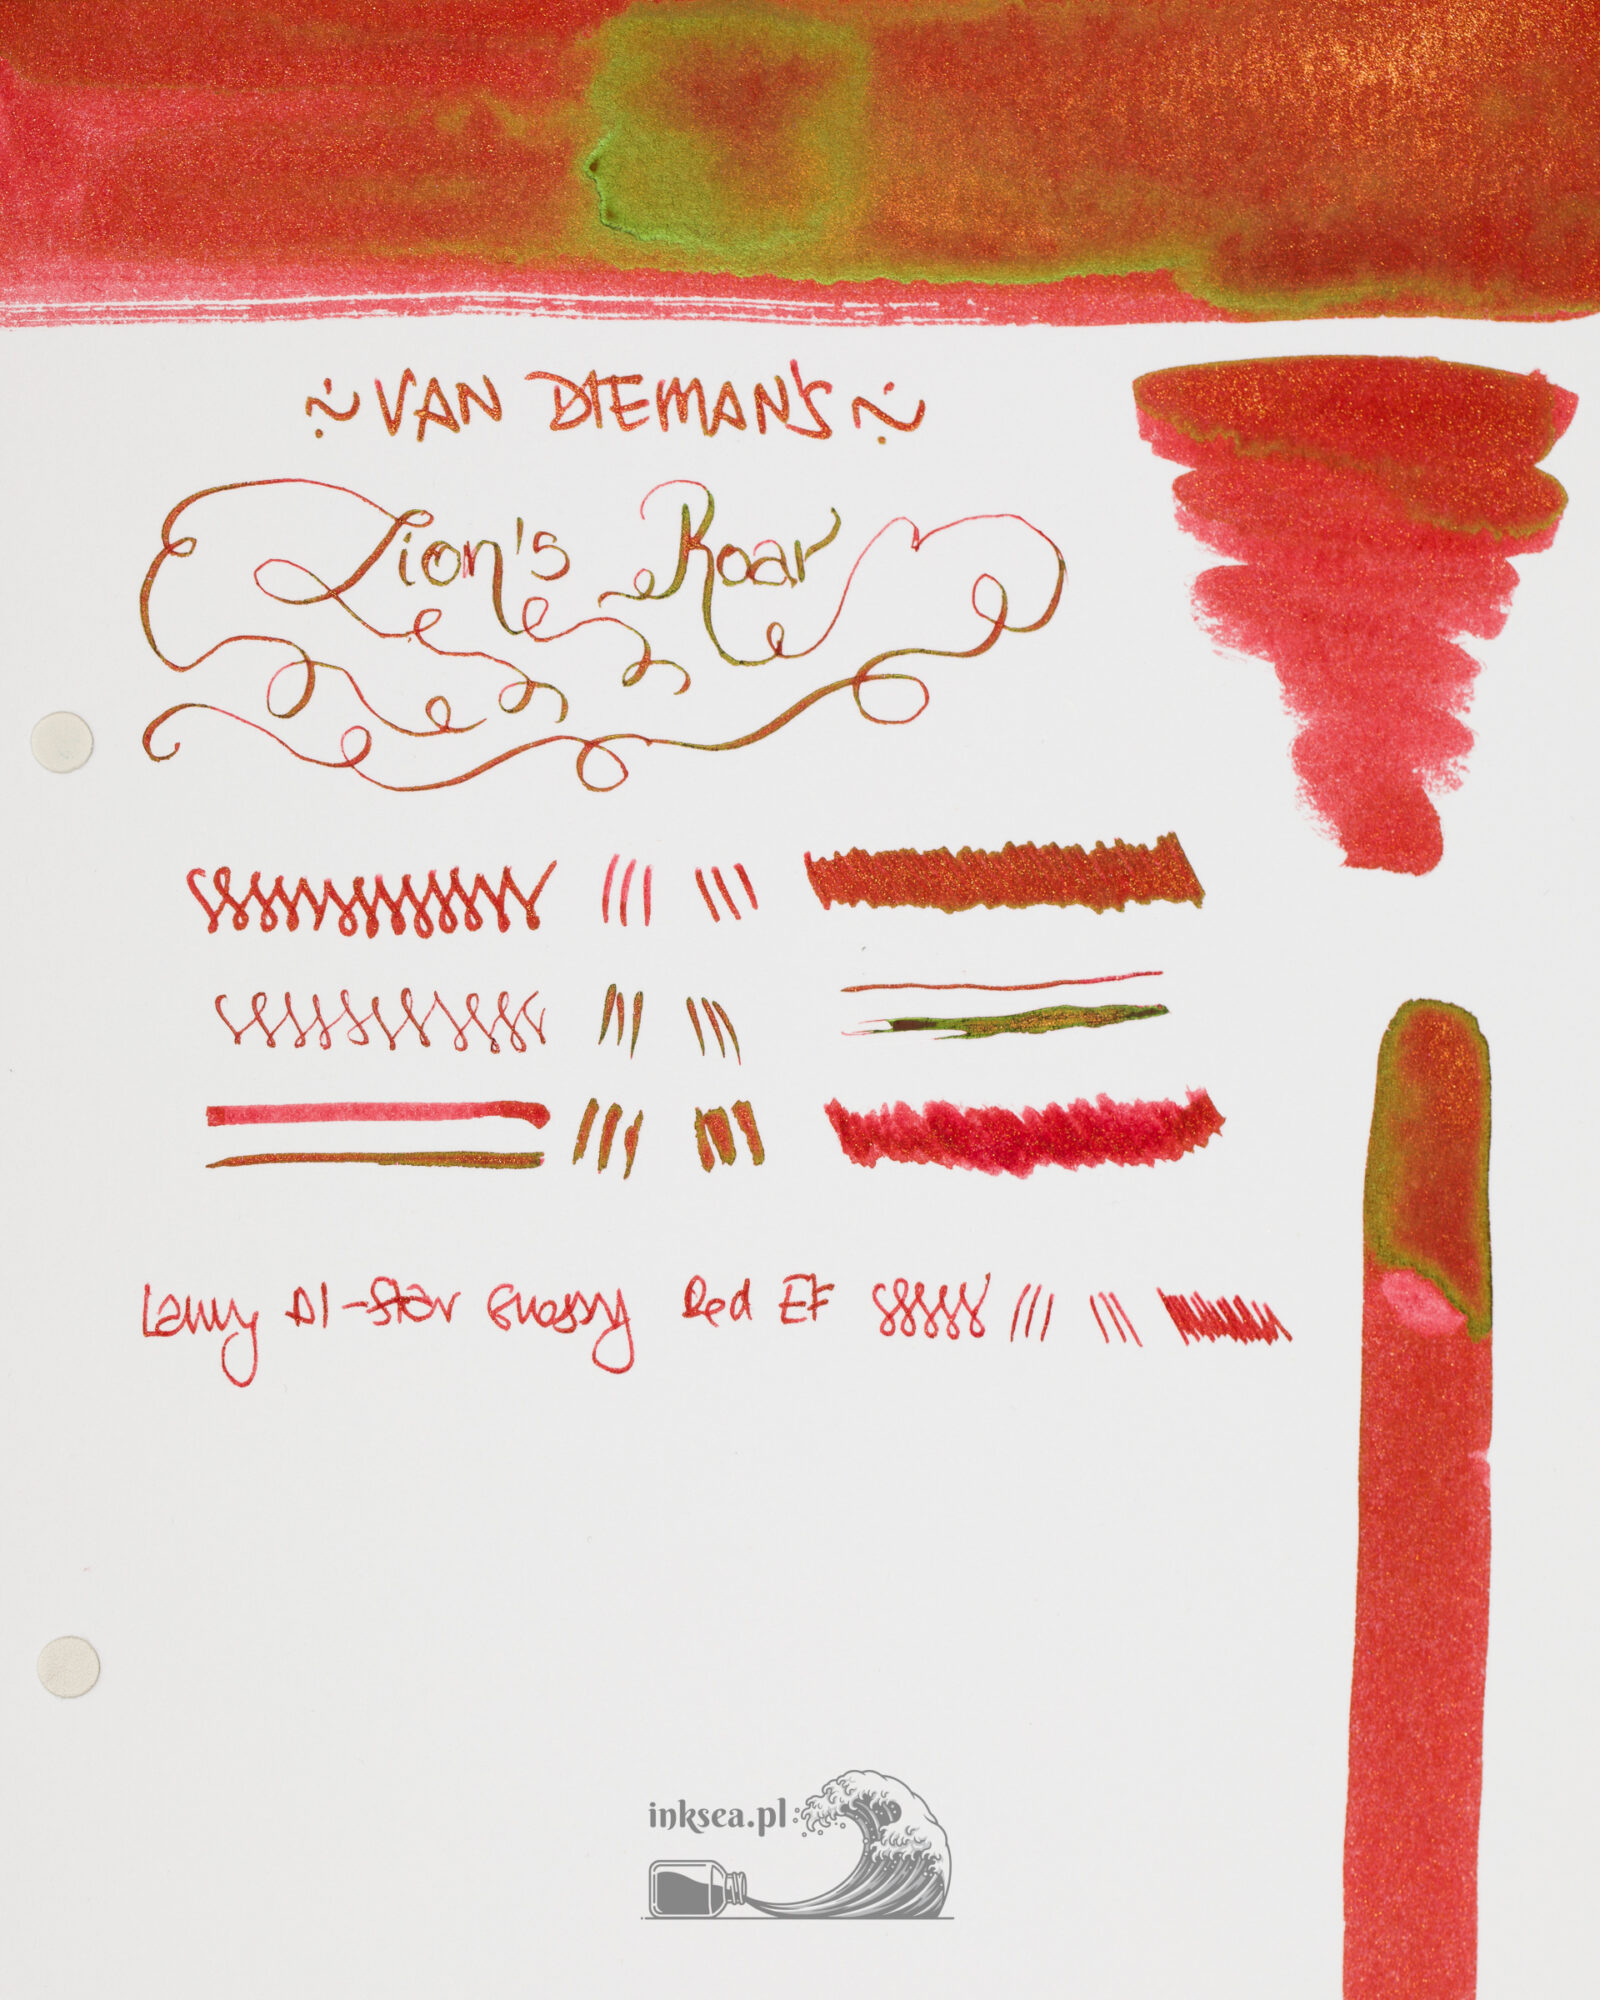 ~ VAN DIEMAN'S ~
Lion's Roar
Lamy Al-Star Glossy Red EF
inksea.pl